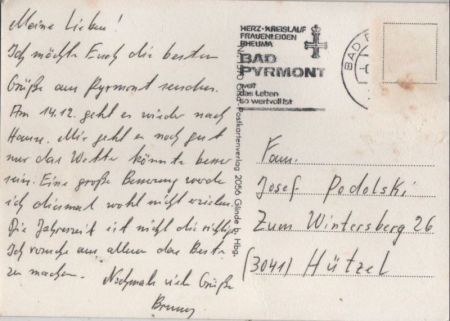 Meine Lieben!
Ich möchte Euch die besten
Grüße aus Pyrmont senden.
Am 14.12. geht es wieder nach
Hause. Mir geht es noch gut
nur das Wetter könnte besser
sein. Eine große Besserung werde
ich diesmal wohl nicht erzielen
Die Jahreszeit ist nicht die richtige
Ich versuche aus allem das Beste
zu machen. Nochmals viele Grüße
HERZ-KREISLAUF
FRAUENLEIDEN
RHEUMA
BAD
PYRMONT
weil
das Leben
so wertvoll ist
BAD
Postkartenverlag 2056 Glinde b. Hbg.
Fam.
Josef Podolski
Zum Wintersberg 26
(3041) Hützel